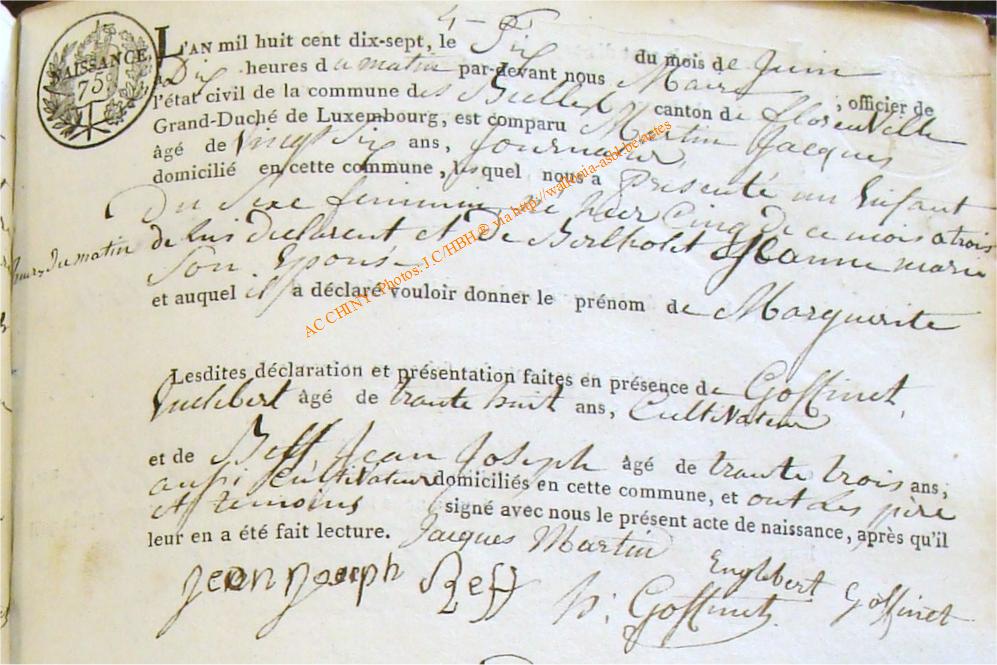 4-
NAISSANCE.
75c
L'AN mil huit cent dix-sept, le Six du mois de Juin
à Dix heures d u matin par-devant nous Maire, officier de
l'état civil de la commune des Bulles canton de florenville
Grand-Duché de Luxembourg, est comparu Martin Jacques
âgé de Vingt Six ans, Journalier
domicilié en cette commune, lesquel nous a présenté un Enfant
Du Sexe feminin né hier Cinq de ce mois a trois
heures du matin
de lui declarant et De Bertholet Jeanne marie
Son Epouse
et auquel il a déclaré vouloir donner le prénom de Marguerite
Lesdites déclaration et présentation faites en présence de Goffinet,
Englebert âgé de trante huit ans, Cultivateur
et de Jean Joseph âgé de trante trois ans,
aussi Cultivateur domiciliés en cette commune, et ont les père
et temoins signé avec nous le présent acte de naissance, après qu'il
leur en a été fait lecture. Jacques Martin
Englebert Goffinet
Jean Joseph
Goffinet
AC CHINY - Photos: J.C/HBH® via http://wallonia-asbl.be/actes